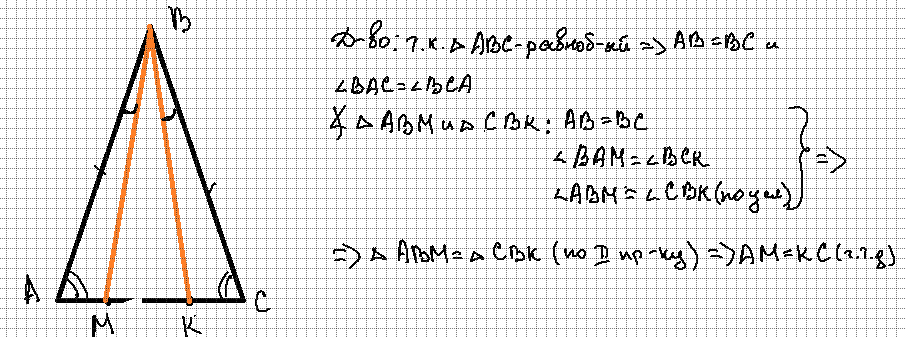 B
Д-во: т.к. △ ABC-равноб-ий => AB = BC и
∠BAC = ∠BCA
△ ABM и △ CBK: AB = BC
∠BAM = ∠BCK =>
∠ABM = ∠CBK (по усл)
=> △ ABM = △ CBK (по II пр-ку) => AM = KC (ч.т.д)
A C
M K